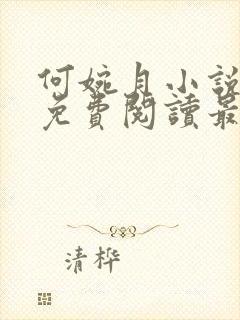 何婉月小說
免費閱讀最
清樺